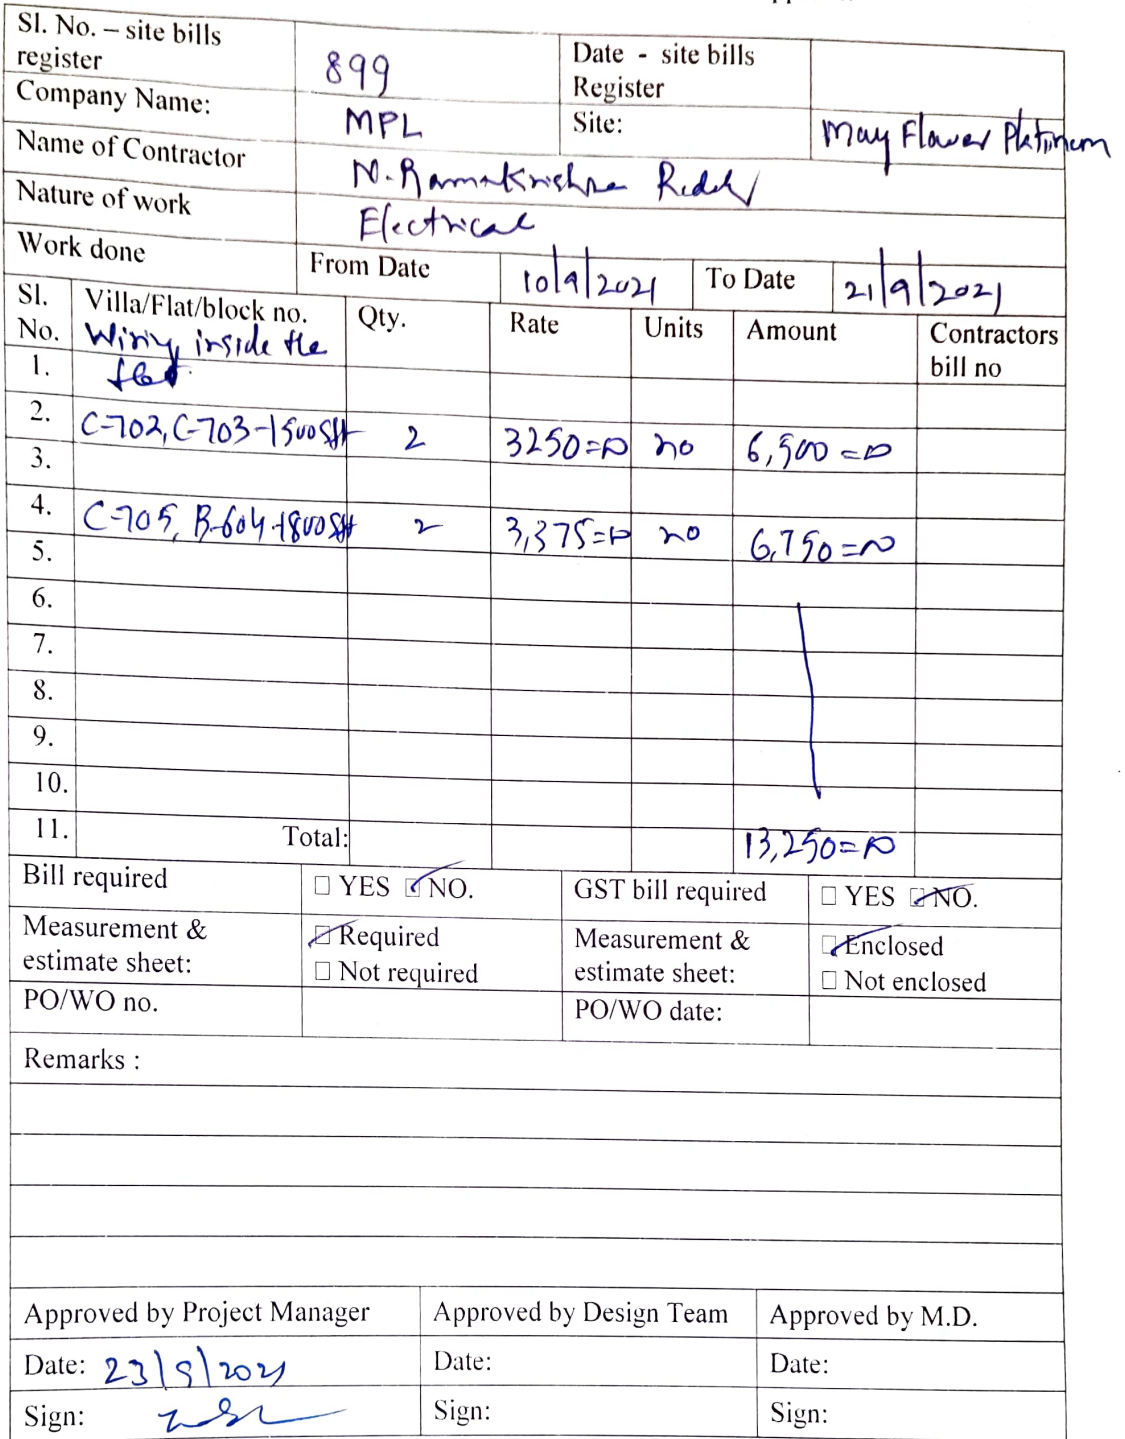 Sl. No. – site bills register 899 Date - site bills Register
Company Name: MPL Site: May Flower Platinum
Name of Contractor N. Ramakrishna Reddy
Nature of work Electrical
Work done From Date 10/9/2021 To Date 21/9/2021
Sl. No. Villa/Flat/block no. Qty. Rate Units Amount Contractors bill no
1. Wiring inside the flat.
2. C-702, C-703-1500Sft 2 3250=00 no 6,500=00
3.
4. C-705, B-604-1800Sft 2 3,375=00 no 6,750=00
5.
6.
7.
8.
9.
10.
11. Total: 13,250=00
Bill required ☐ YES ☑ NO. GST bill required ☐ YES ☑ NO.
Measurement & estimate sheet: ☑ Required Measurement & estimate sheet: ☑ Enclosed
☐ Not required ☐ Not enclosed
PO/WO no. PO/WO date:
Remarks :
Approved by Project Manager Approved by Design Team Approved by M.D.
Date: 23/9/2021 Date: Date:
Sign: Sign: Sign: